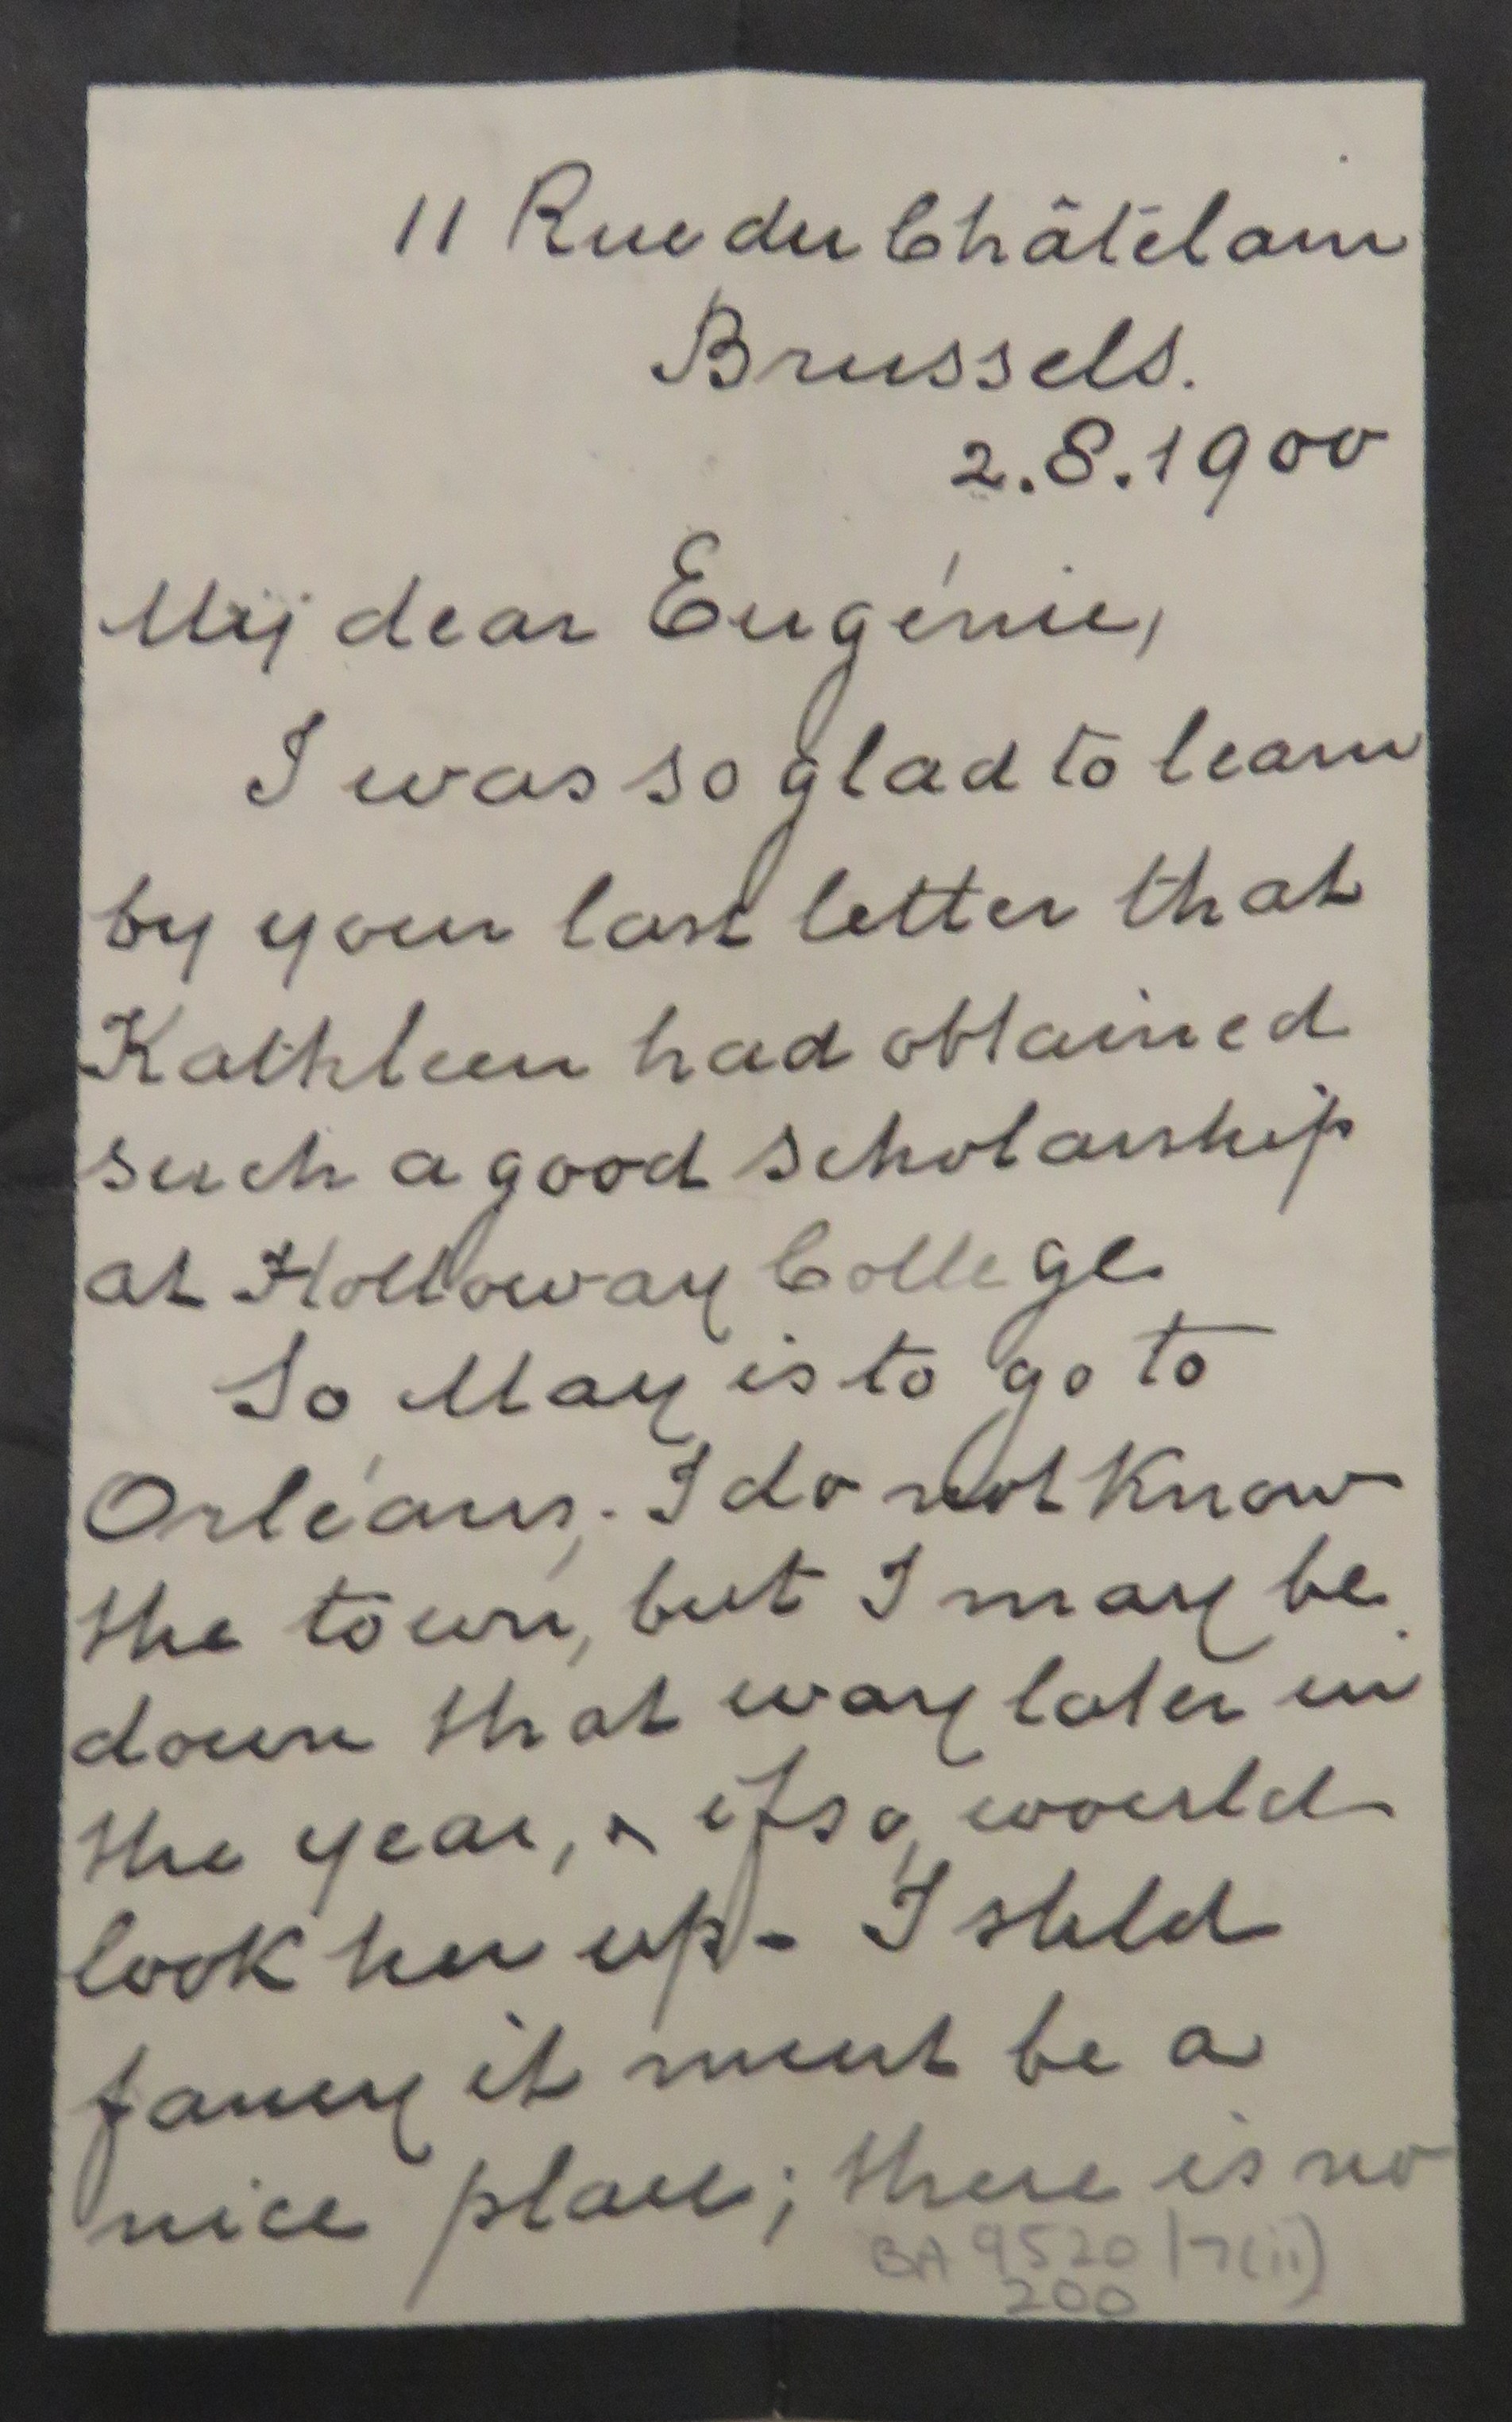 11 Rue du Châtélain
Brussels.
2.8.1900
My dear Eugénie,
I was so glad to learn
by your last letter that
Kathleen had obtained
such a good scholarship
at Holloway College
So May is to go to
Orléans,. I do not know
the town, but I may be
down that way later in
the year, & if so, would
look her up - I shld
fancy it must be a
nice place; there is no
BA 9520/7(ii)
200